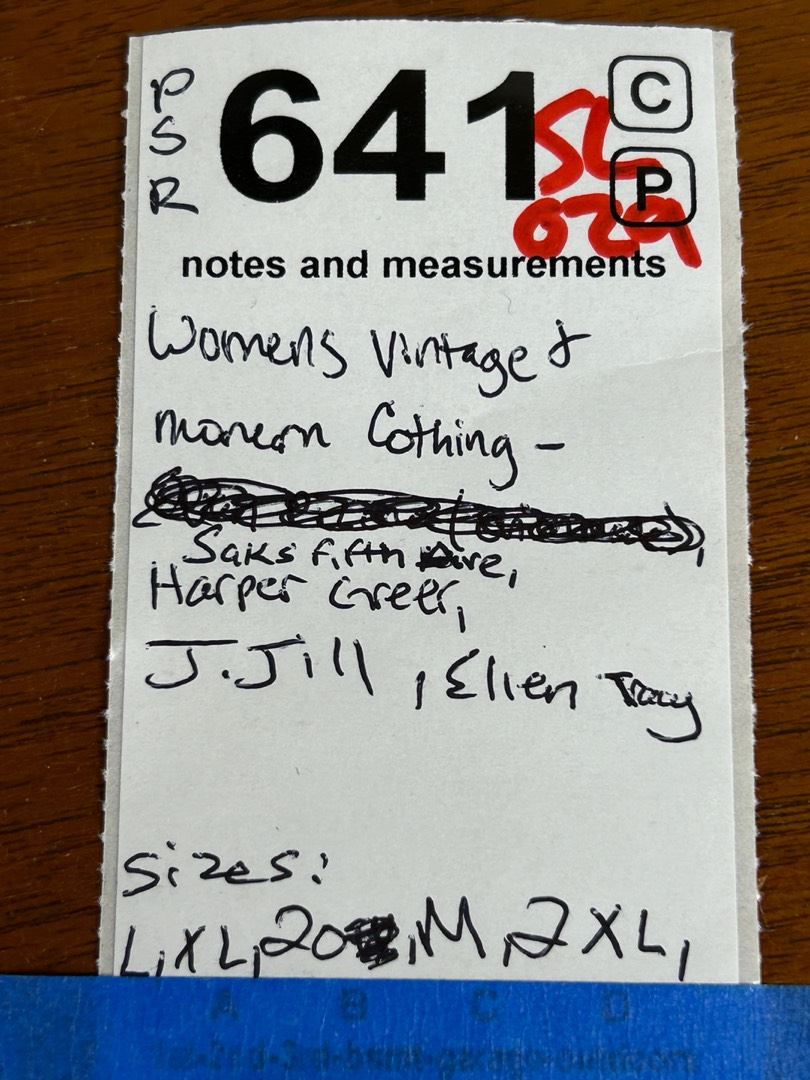 P
S
R
641
C
P
SL
029
notes and measurements
Womens Vintage &
monern Cothing -
Saks fifth Ave,
Harper Greer,
J.Jill , Ellen Tracy
Sizes:
L, XL, 20 , M, 2XL,
A B C D
1st-2nd-3rd-bsmt-garage-outdoom